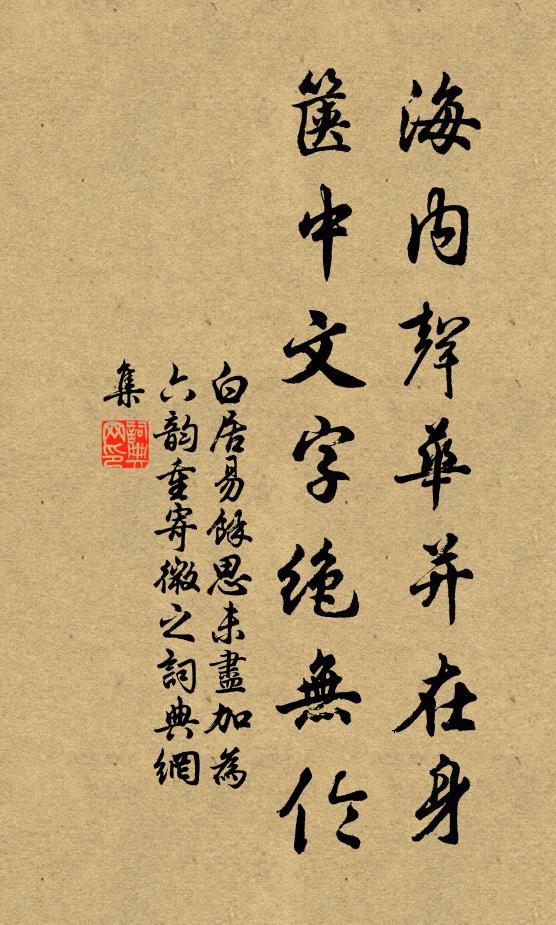 海內聲華并在身
篋中文字絕無倫
白居易餘思未盡加為
六韵重寄微之詞典網
集
詞典網印